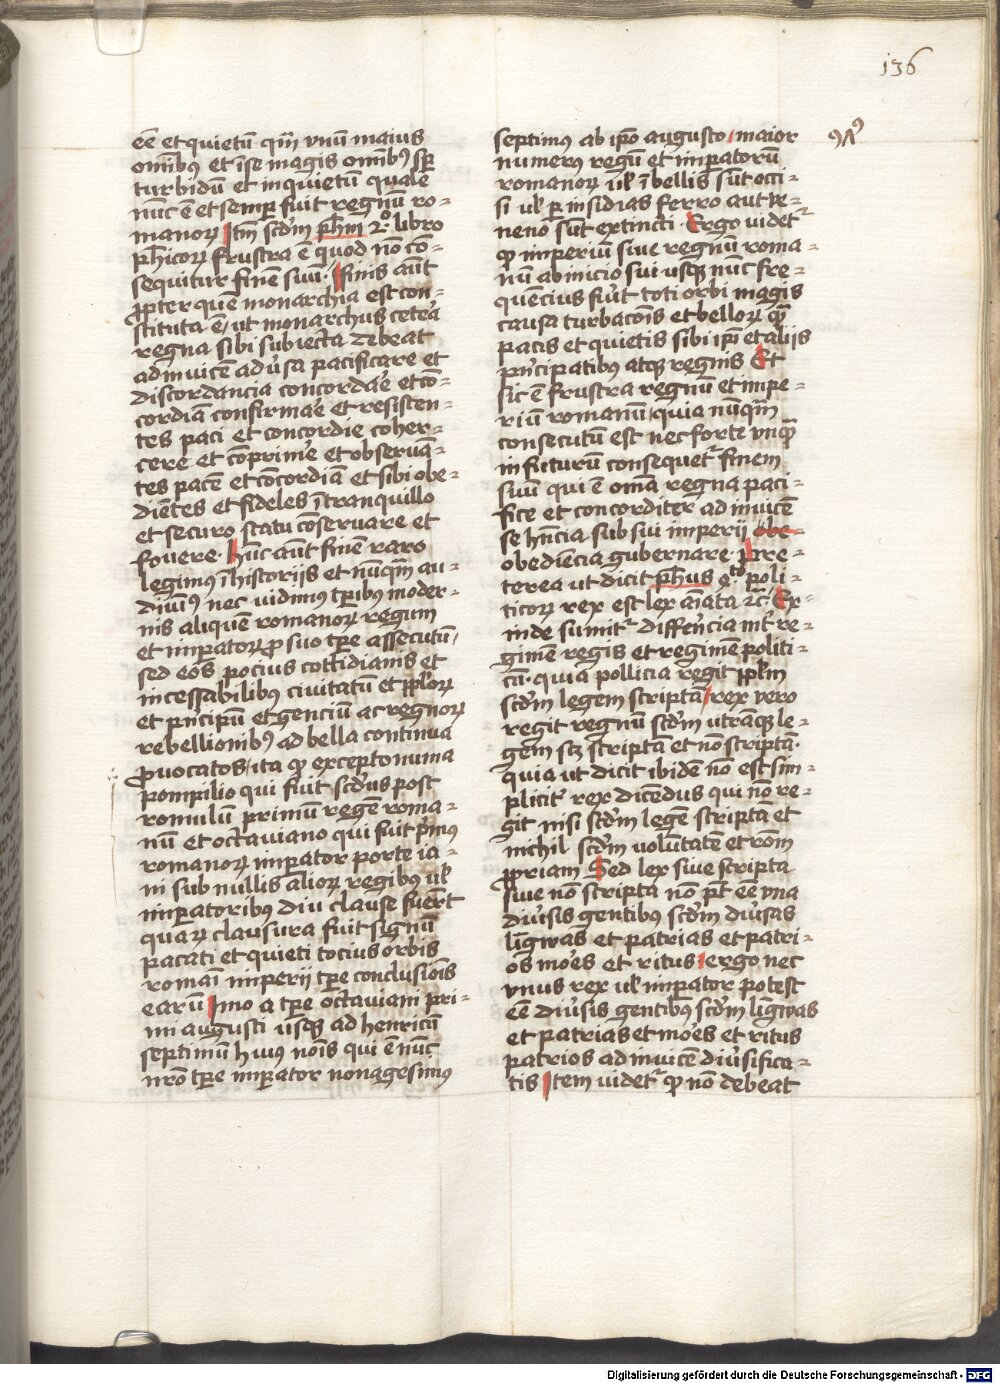 136
eē et quietū qm̄ vnū maius
om̄ibꝰ et ī se magis om̄ibꝰ sp̄
turbidū et inquietū quale
nūc ē et semp fuit regnū ro-
manoꝝ Itm̄ scdm̄ ph̄m 2° libro
ph̄icoꝝ frustra ē quod nō cō-
sequitur finē suū. Finis aūt
ꝓpter quē monarchia est con-
stituta ē, ut monarchus cetera
regna sibi subiecta debeat
adinuicē adusa pacificare et
discordancia concordare et cō-
cordiā confirmare et resisten-
tes paci et concordie coher-
cere et cōprimere et obseruā-
tes pacē et concordiā et sibi obe-
dientes et fideles ī tranquillo
et securo statu cōseruare et
fouere. Hūc aūt finē raro
legimus ī historiis et nūqm̄ au-
diuimꝰ nec vidimus tp̄ibus moder-
nis aliquē romanoꝝ regum
et imp̄atoꝝ ꝓ suo tp̄e assecutū,
sed eos pocius cottidianis et
incessabilibus ciuitatū et pp̄loꝝ
et prīcipū et genciū ac regnoꝝ
rebellionibꝰ ad bella continua
ꝓuocatos, ita ꝙ excepto numa
pompilio qui fuit scdus post
romulū primū regē roma-
nū et octauiano qui fuit primus
romanoꝝ imp̄ator porte ia-
ni sub nullis alioꝝ regibus ul
imp̄atoribus diu clause fuerūt
quaꝝ clausura fuit signū
pacati et quieti tocius orbis
romani imperii tp̄e conclusionis
earū Imo a tp̄e octauiani pri-
mi augusti usqꝫ ad henricū
septimū huius nōis qui ē nūc
nr̄o tp̄e imperator nonagesimus
septimus ab ip̄o augusto, maior
numerus regū et imp̄atorū
romanoꝝ ul ī bellis sūt occi-
si ul per insidias ferro aut ve-
neno sūt extincti. Ergo videtur
ꝙ imperiū siue regnū roma-
nū ab inicio sui usqꝫ nūc fre-
quēcius fuit toti orbi magis
causa turbacōis et belloꝝ qm̄
pacis et quietis sibi ip̄i et aliis
prīcipatibus atqꝫ regnis Et
sic ē frustra regnū et impe-
riū romanū, quia nūqm̄
consecutū est nec forte vnqm̄
in futurū consequet' finem
suū qui ē om̄ia regna paci-
fice et concorditer ad inuicē
se hn̄cia sub sui imperii obe-
obediēcia gubernare. Pre-
terea ut dicit ph̄us q̄rto poli-
ticoꝝ rex est lex aīata ⁊c̄ Ex
inde sumit' differ̄ncia int' re-
gimē regis et regimē politi-
cū. quia pollicia regit pp̄lm
scdm̄ legem scriptā, rex vero
regit regnū scdm̄ utrāqꝫ le-
gem scꝫ scriptā et nō scriptā.
quia ut dicit ibidē nō est sim-
plicit' rex dicēdus qui nō re-
git nisi scdm̄ legē scriptā et
nichil scdm̄ volūtatē et rōm
ꝓpriam Sed lex siue scripta
siue nō scripta nō p̄t eē vna
diūsis gentibus scdm̄ diūsas
lingwas et patrias et patri-
os mores et ritus, ergo nec
vnus rex ul imp̄ator potest
eē diūsis gentibus scdm̄ lingwas
et patrias et mores et ritus
patrios ad inuicē diūsifica-
tis Item videt' ꝙ nō debeat
Digitalisierung gefördert durch die Deutsche Forschungsgemeinschaft - DFG